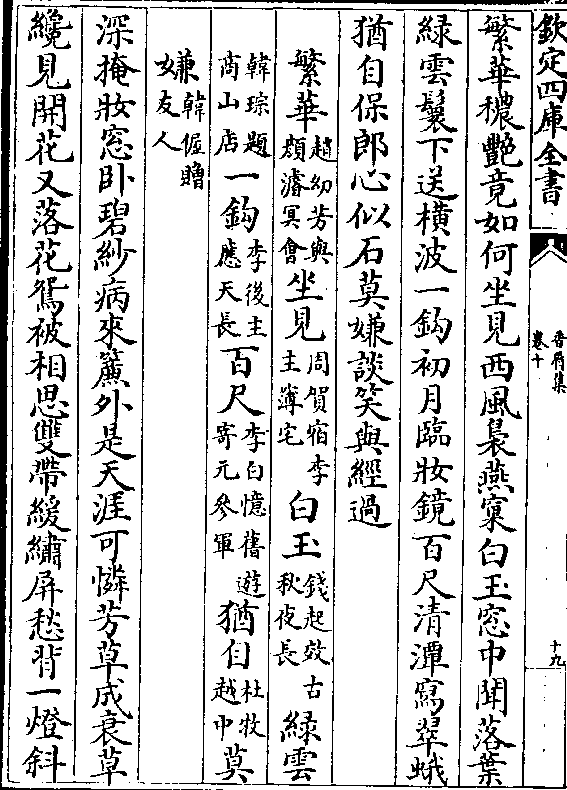 欽定四庫全書
香屑集
卷十
十九
繁華穠艷竟如何坐見西風裊燕窠白玉窓中聞落葉
綠雲鬟下送橫波一鈎初月臨妝鏡百尺清潭寫翠蛾
猶自保郎心似石莫嫌談笑與經過
繁華趙幼芳與顔濬冥會坐見周賀宿李主簿宅白玉錢起效古秋夜長綠雲
韓琮題商山店一鈎李後主應天長百尺李白憶舊遊寄元參軍猶自杜牧越中莫
嫌韓偓贈友人
深掩妝窓卧碧紗病來簾外是天涯可憐芳草成衰草
纔見開花又落花鴛被相思雙帶緩繡屏愁背一燈斜